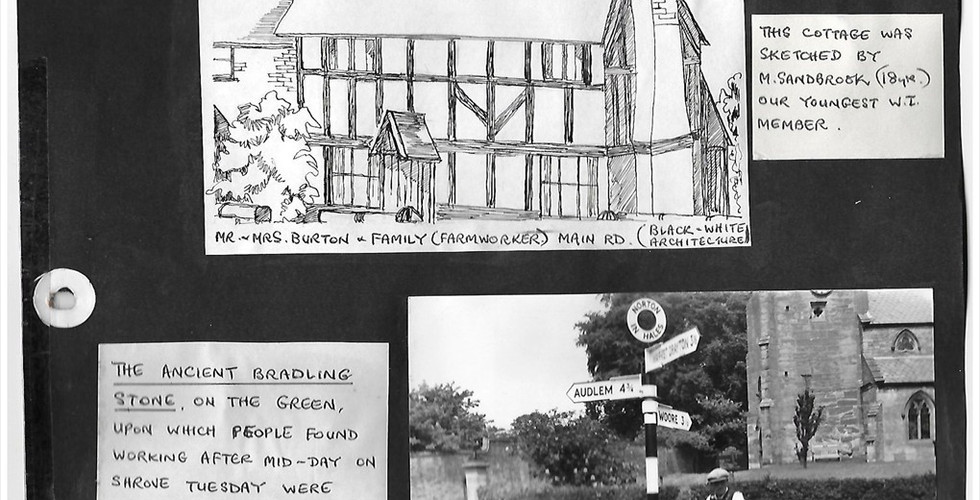 THIS COTTAGE WAS
SKETCHED BY
M. SANDBROOK (18yr.)
OUR YOUNGEST W.I.
MEMBER.
MR. & MRS. BURTON & FAMILY (FARMWORKER) MAIN RD. (BLACK-WHITE
ARCHITECTURE)
NORTON
IN HALES
MARKET DRAYTON 3¼
AUDLEM 4¾
WOORE 3
THE ANCIENT BRADLING
STONE, ON THE GREEN,
UPON WHICH PEOPLE FOUND
WORKING AFTER MID-DAY ON
SHROVE TUESDAY WERE